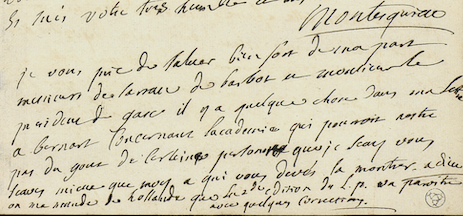 suis votre tres humble et
Montesquieu
je vous prie de saluer bien fort de ma part
messieurs de larroie de barbot et monsieur le
president de gasc il y a quelque chose dans ma lettre
a bernart concernant lacademie qui pouroit nestre
pas du gout de certeines personnes que je scay vous
scaves mieux que moy a qui vous deves la montrer adieu
on me mande de hollande que la 2de edition du L.p. va paroitre
avec quelques corrections